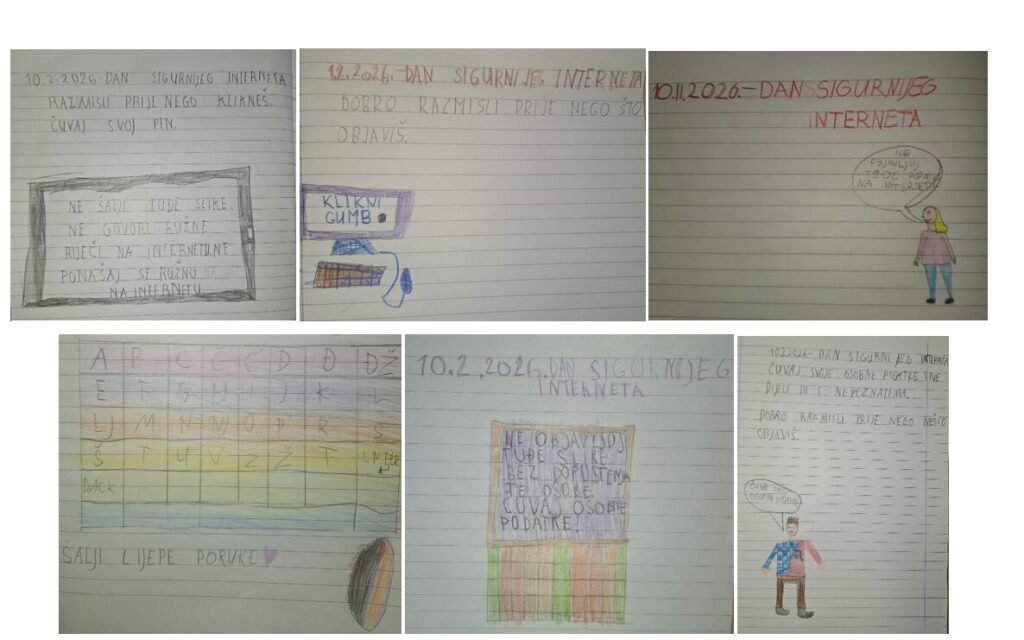 10.2.2026.-DAN SIGURNIJEG INTERNETA
RAZMISLI PRIJE NEGO KLIKNEŠ.
ČUVAJ SVOJ PIN.
NE ŠALJI TUĐE SLIKE.
NE GOVORI RUŽNE
RIJEČI NA INTERNETU.NE
PONAŠAJ SE RUŽNO
NA INTERNETU.
1.2.2026.-DAN SIGURNIJEG INTERNETA
DOBRO RAZMISLI PRIJE NEGO ŠTO
OBJAVIŠ.
KLIKNI
GUMB
10.II.2026.-DAN SIGURNIJEG
INTERNETA
NE
OBJAVLJUJ
TUĐE PODATKE
NA INTERNETU
A B C Č Ć D Đ DŽ
E F G H I J K L
LJ M N NJ O P R S
Š T U V Z Ž T
BACK
ŠALJI LIJEPE PORUKE
10.2.2026. DAN SIGURNIJEG
INTERNETA
NE OBJAVLJUJ
TUĐE SLIKE
BEZ DOPUŠTENJA
TE OSOBE
ČUVAJ OSOBNE
PODATKE!
10.2.2026.- DAN SIGURNIJEG INTERNETA
ČUVAJ SVOJE OSOBNE PODATKE I NE
DIJELI IH S NEPOZNATIM.
DOBRO RAZMISLI PRIJE NEGO NEŠTO
OBJAVIŠ.
OSOBNE